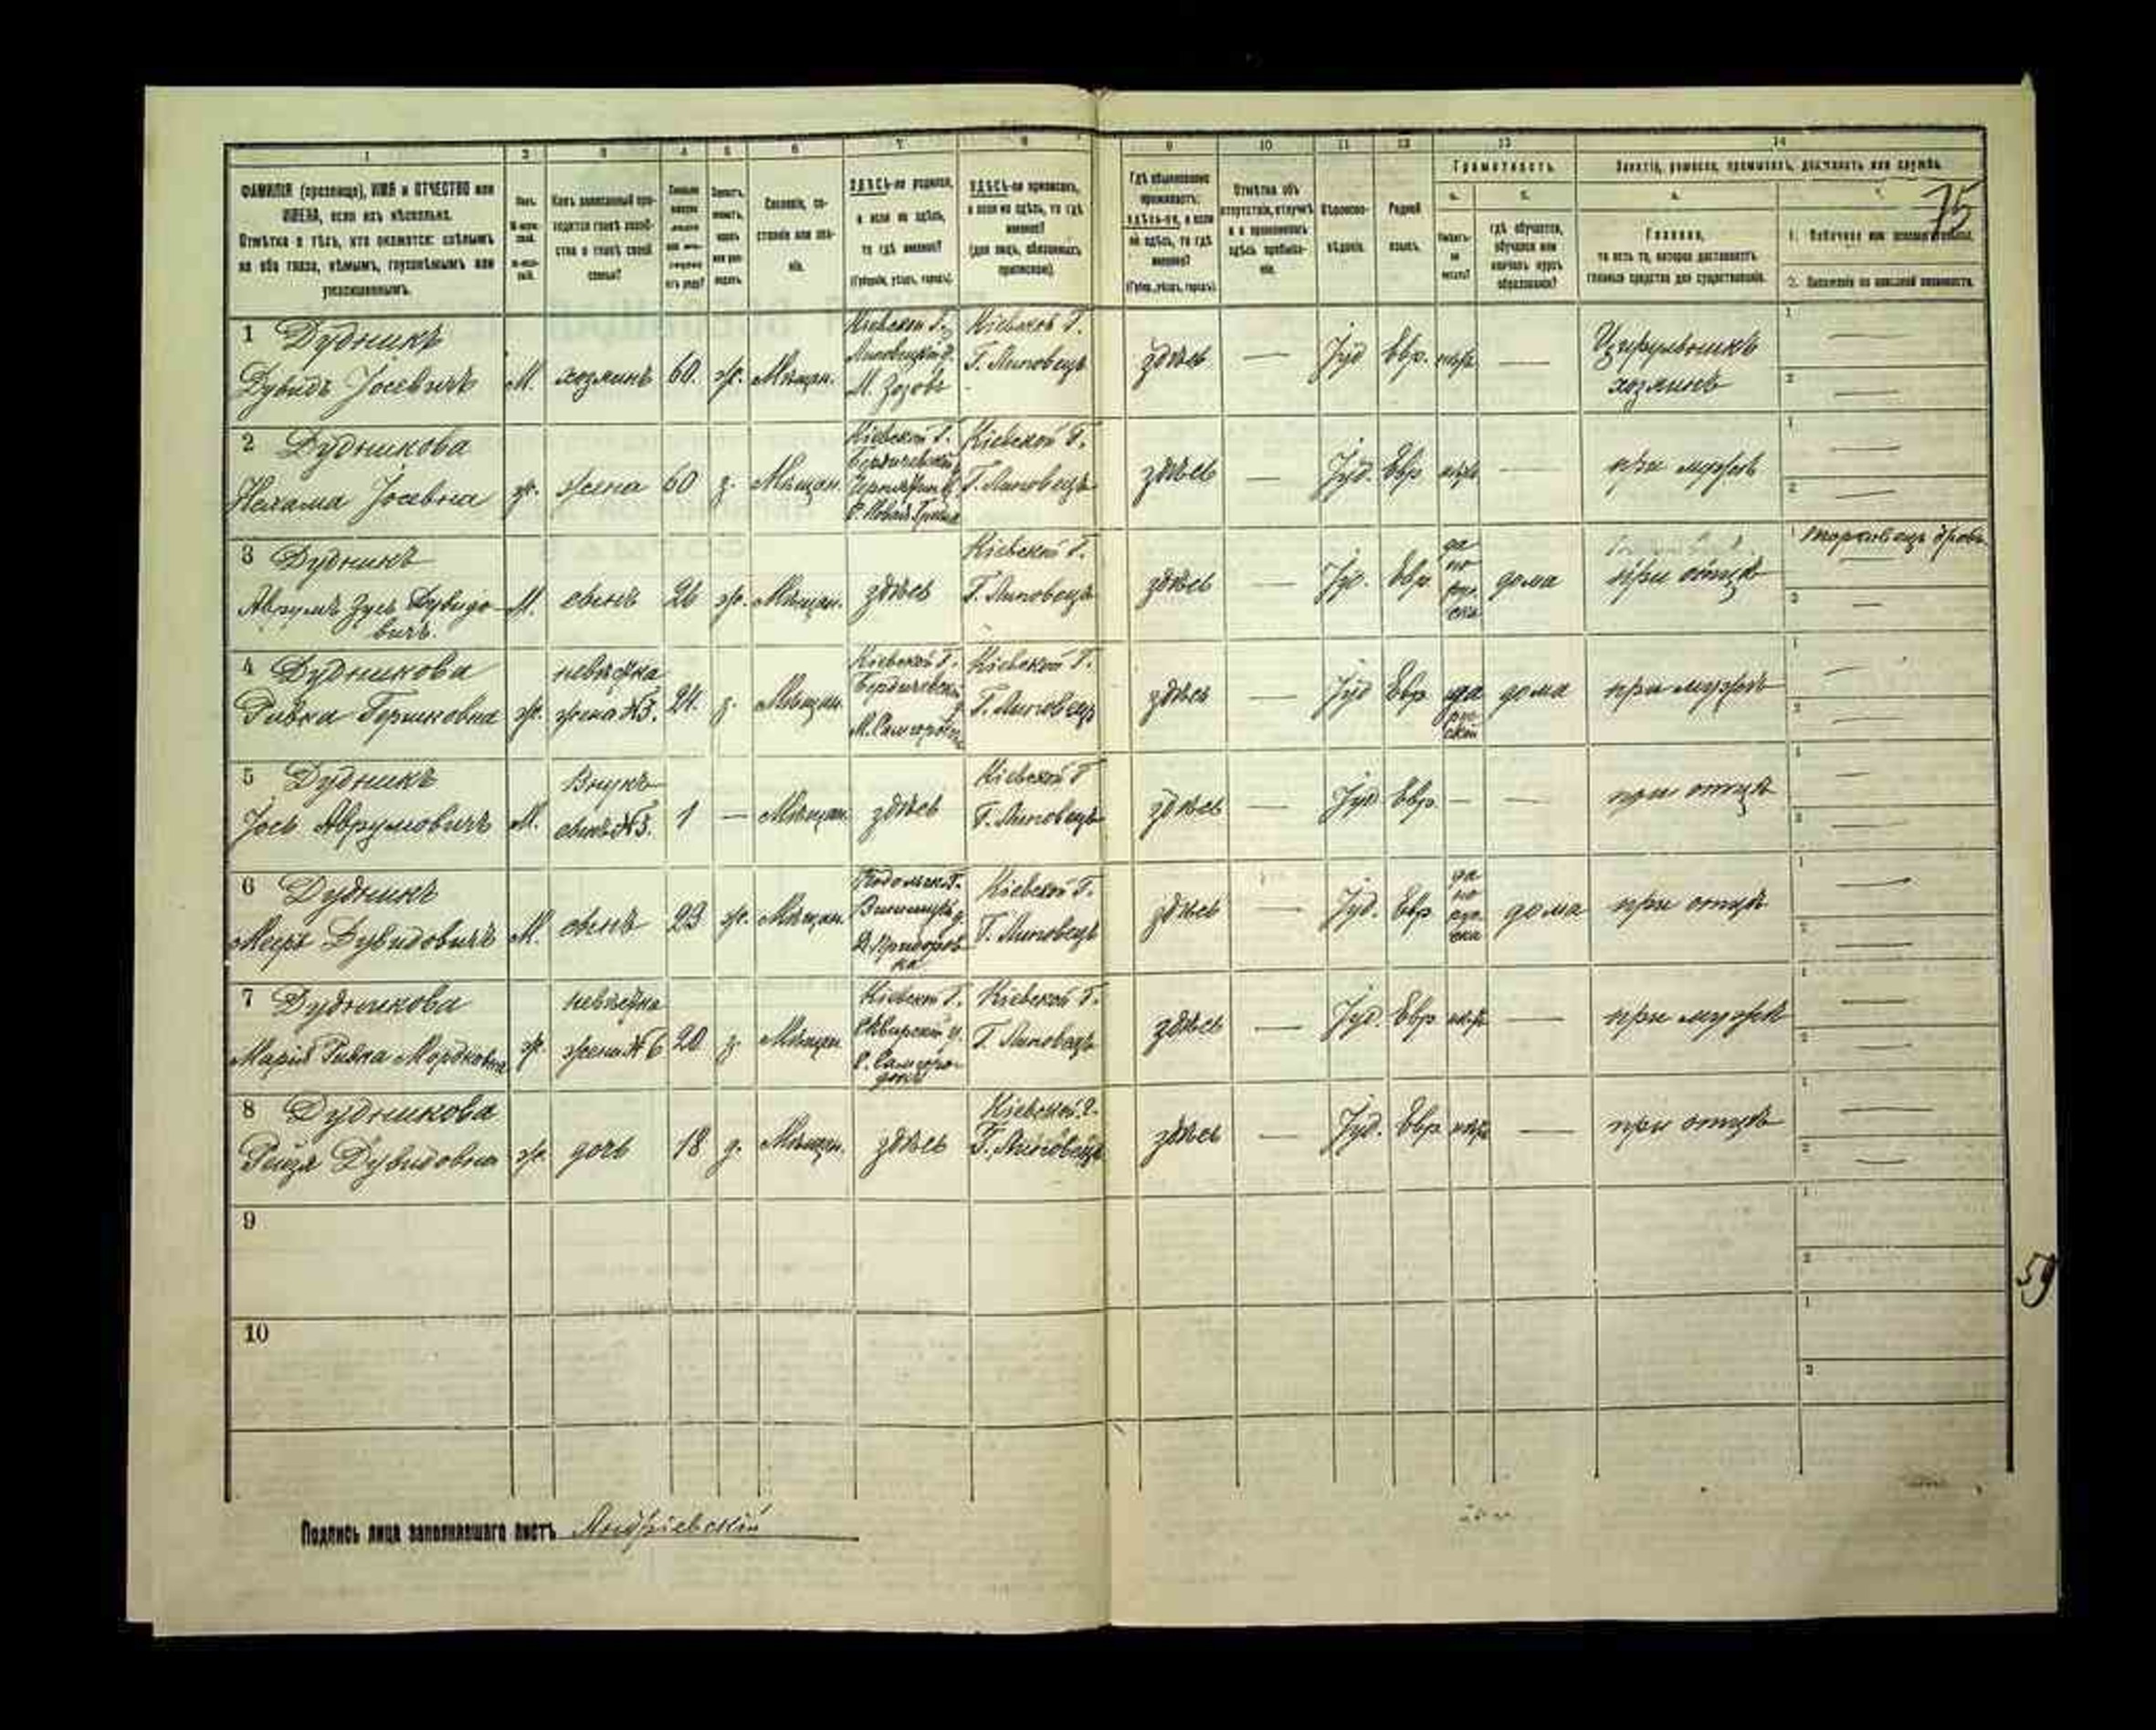 1 2 3 4 5 6 7 8 9 10 11 12 13 14
ФАМИЛІЯ (прозвище), ИМЯ и ОТЧЕСТВО или
ИМЕНА, если ихъ нѣсколько.
Отмѣтка о тѣхъ, кто окажется: слѣпымъ
на оба глаза, нѣмымъ, глухонѣмымъ или
умалишеннымъ.
Полъ.
Какъ записанный при-
ходится главѣ хозяй-
ства и главѣ своей
семьи?
Сословіе, со-
стояніе или зва-
ніе.
ЗДѢСЬ-ли родился,
а если не здѣсь,
то гдѣ именно?
(Губернія, уѣздъ, городъ).
ЗДѢСЬ-ли приписанъ,
а если не здѣсь, то гдѣ
именно?
(для лицъ, обязанныхъ
припискою).
Гдѣ обыкновенно
проживаетъ:
здѣсь-ли, а если
не здѣсь, то гдѣ
именно?
(Губер., уѣздъ, городъ).
Отмѣтка объ
отсутствіи, отлучкѣ
и о временномъ
здѣсь пребыва-
ніи.
Вѣроиспо-
вѣданіе.
Родной
языкъ.
Грамотность.
а. б.
Умѣетъ-
ли
читать?
гдѣ обучается,
обучался или
кончилъ курсъ
образованія?
Занятіе, ремесло, промыселъ, должность или служба.
75
Главное,
то есть то, которое доставляетъ
главныя средства для существованія.
1. Побочное или вспомогательное.
2. Положеніе по воинской повинности.
1 Дудникъ
Дувидъ Іосевичъ
М. хозяинъ 60. ж. Мѣщан.
Кіевской Г.
Липовецкій у.
М. Зозовъ
Кіевской Г.
Г. Липовецъ
здѣсь — Іуд Евр. —
Цирульникъ
хозяинъ
1 —
2 —
2 Дудникова
Нехама Іосевна
ж. жена 60 з. Мѣщан.
Кіевской Г.
Бердичевскій
Кіевской Г.
Г. Липовецъ
здѣсь — Іуд. Евр —
при мужѣ
1 —
2 —
3 Дудникъ
Аврумъ Зусь Дувидо-
вичъ.
М. сынъ 26 ж. Мѣщан. здѣсь
Кіевской Г.
Г. Липовецъ
здѣсь — Іуд. Евр.
да
по
рус-
ски
дома при отцѣ
1 торговецъ дровъ
2 —
4 Дудникова
Ривка Гершковна
ж.
невѣстка
жена №3.
24. з. Мѣщан.
Кіевской Г.
Бердичевскій
у.
М. Самгородокъ
Кіевской Г.
Г. Липовецъ
здѣсь — Іуд Евр
да
рус-
ской
дома при мужѣ
1 —
2 —
5 Дудникъ
Іось Аврумовичъ
М.
Внукъ
сынъ №3.
1 — Мѣщан. здѣсь
Кіевской Г
Г. Липовецъ
здѣсь — Іуд Евр. — — при отцѣ
1 —
2 —
6 Дудникъ
Мееръ Дувидовичъ
М. сынъ 23 ж. Мѣщан.
Подольск. Г.
Винницкій у.
Кіевской Г.
Г. Липовецъ
здѣсь — Іуд. Евр
да
по
рус-
ски
дома при отцѣ
1 —
2 —
7 Дудникова
Марія Ривка Мордковна
ж.
невѣстка
жена №6
20 з. Мѣщан
Кіевской Г.
Сквирскій у.
С. Самгоро-
докъ
Кіевской Г.
Г. Липовецъ
здѣсь — Іуд. Евр — при мужѣ
1 —
2 —
8 Дудникова
Рейзя Дувидовна
ж. дочь 18 д. Мѣщан. здѣсь
Кіевской г.
Г. Липовецъ
здѣсь — Іуд. Евр — при отцѣ
1 —
2 —
9
1
2
59
10
1
2
Подпись лица заполнявшаго листъ Андріевскій